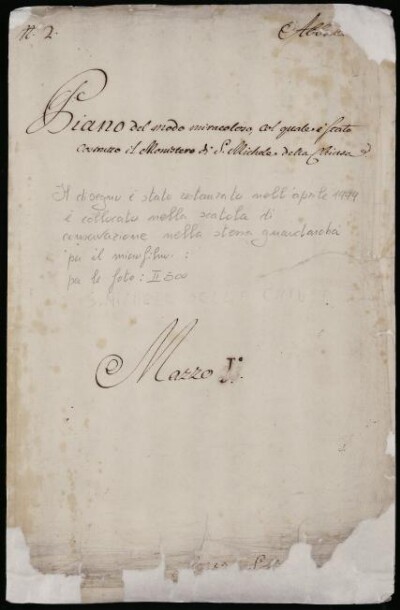 N. 2.
Piano del modo miracoloso, col quale è stato
costrutto il Monistero di S. Michele della Chiusa
Il disegno è stato restaurato nell'aprile
è collocato nella scatola di
conservazione nella stessa guardaroba
per il microfilm :
per le foto : II 500
Mazzo I.